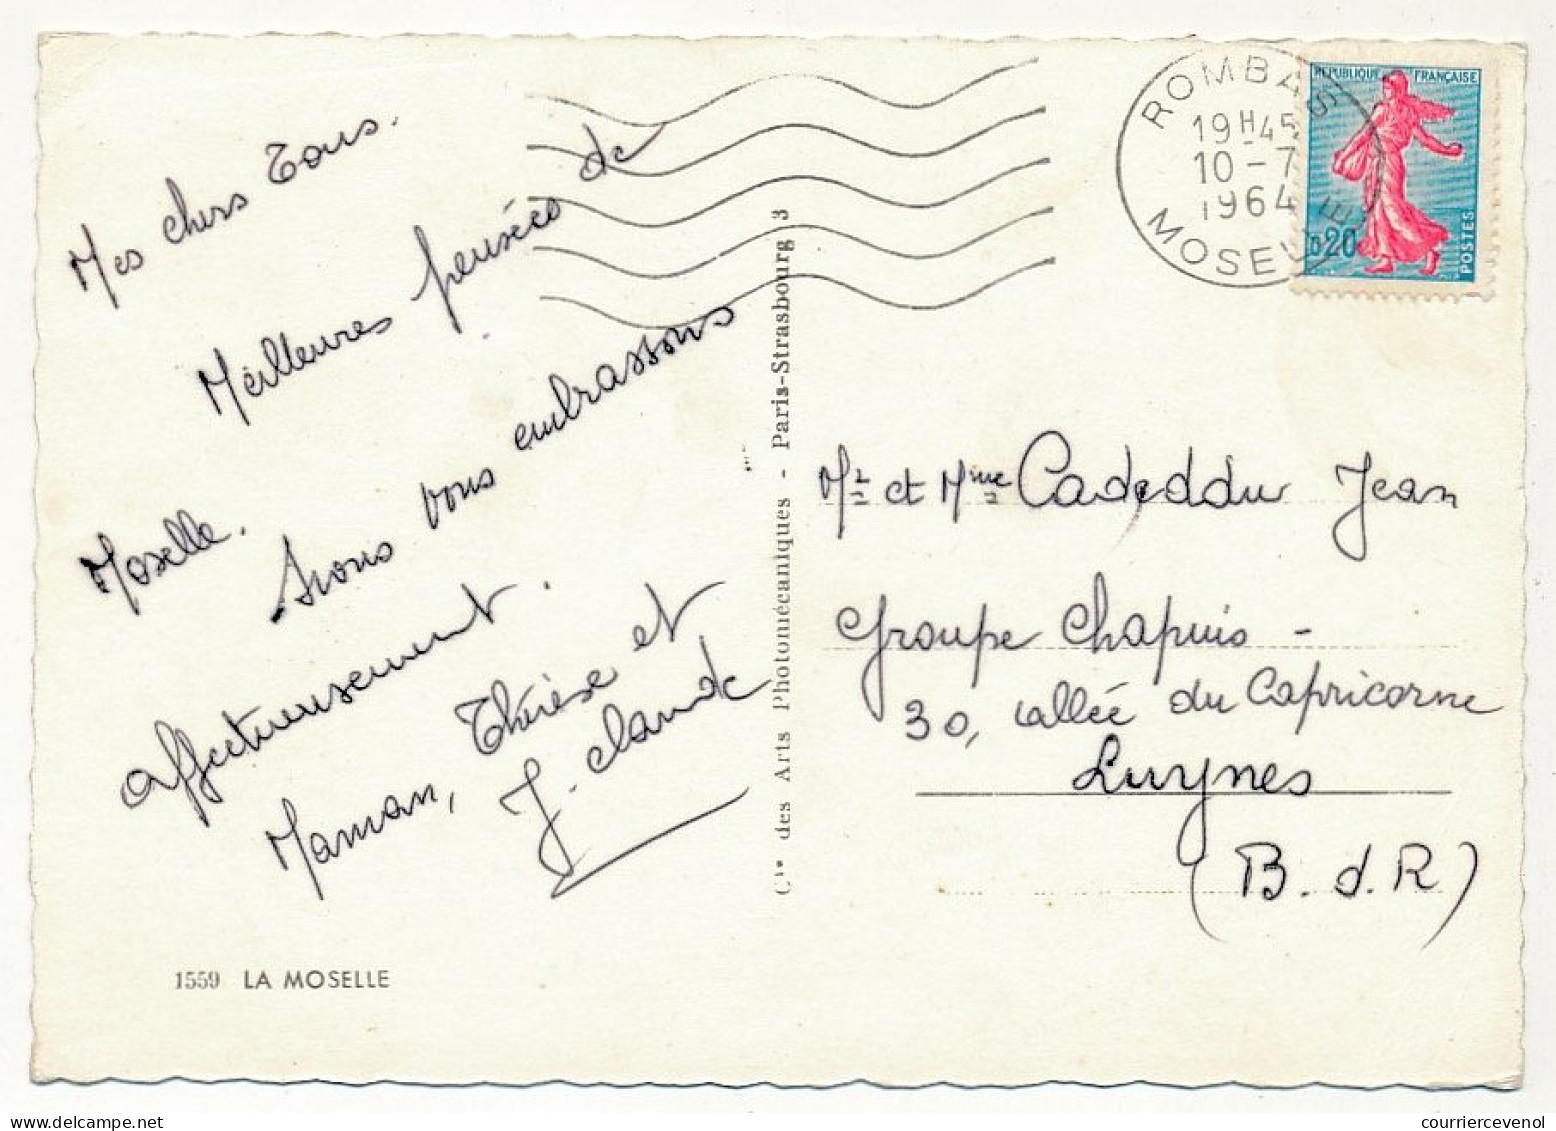 Mes chers Tous.
Meilleures pensées de
Moselle.
Nous vous embrassons
affectueusement.
Maman, Thérèse et
J-claude
1559 LA MOSELLE
Cie des Arts Photomécaniques - Paris-Strasbourg 3
ROMBAS
19H45
10-7
1964
MOSELLE
RÉPUBLIQUE FRANÇAISE
0,20
POSTES
Mr et Mme Cadeddu Jean
Groupe Chapuis -
30, allée du Capricorne
Luynes
(B.d.R)
courriercevenol